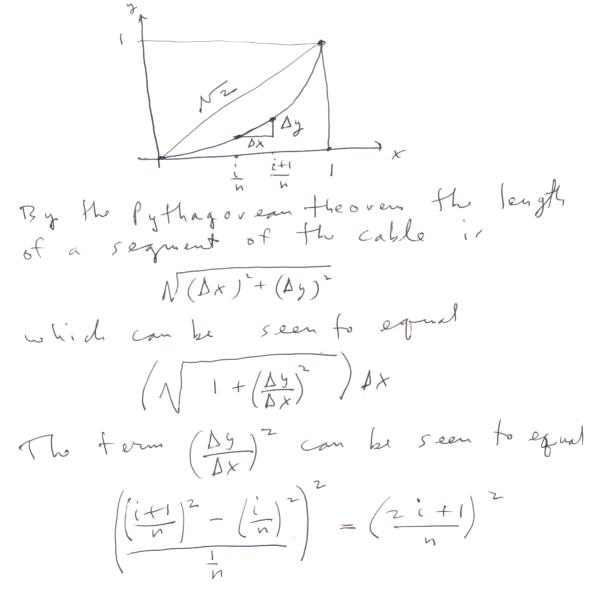 y
1
√2
Δy
Δx
x
i/n
i+1/n
1
By the Pythagorean theorem the length
of a segment of the cable is
√((Δx)² + (Δy)²)
which can be seen to equal
(√(1 + (Δy/Δx)²)) Δx
The term (Δy/Δx)² can be seen to equal
(((i+1/n)² - (i/n)²)/(1/n))² = (2i+1/n)²